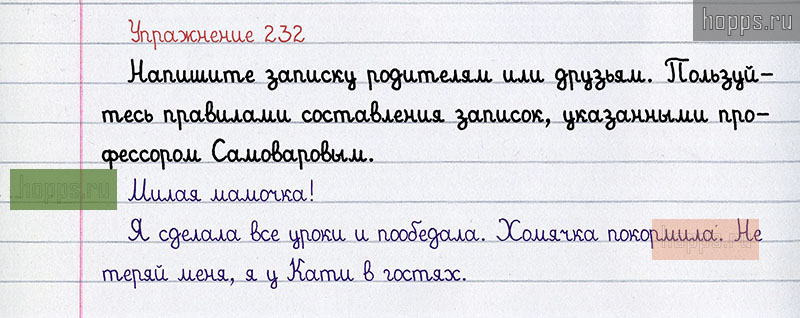 hopps.ru
Упражнение 232
Напишите записку родителям или друзьям. Пользуй-
тесь правилами составления записок, указанными про-
фессором Самоваровым.
hopps.ru
Милая мамочка!
Я сделала все уроки и пообедала. Хомячка покормила. Не
hopps.ru
теряй меня, я у Кати в гостях.